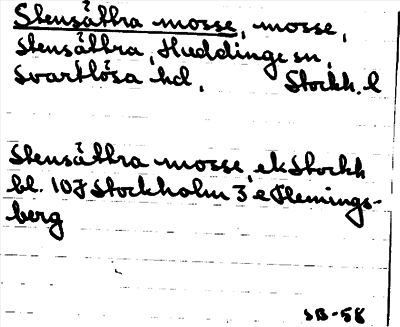 Stensättra mosse, mosse,
Stensättra, Huddinge sn,
Svartlösa hd, Stockh. l
Stensättra mosse, ek Stockh
bl. 10J Stockholm 3 e Flemings-
berg
SB-58